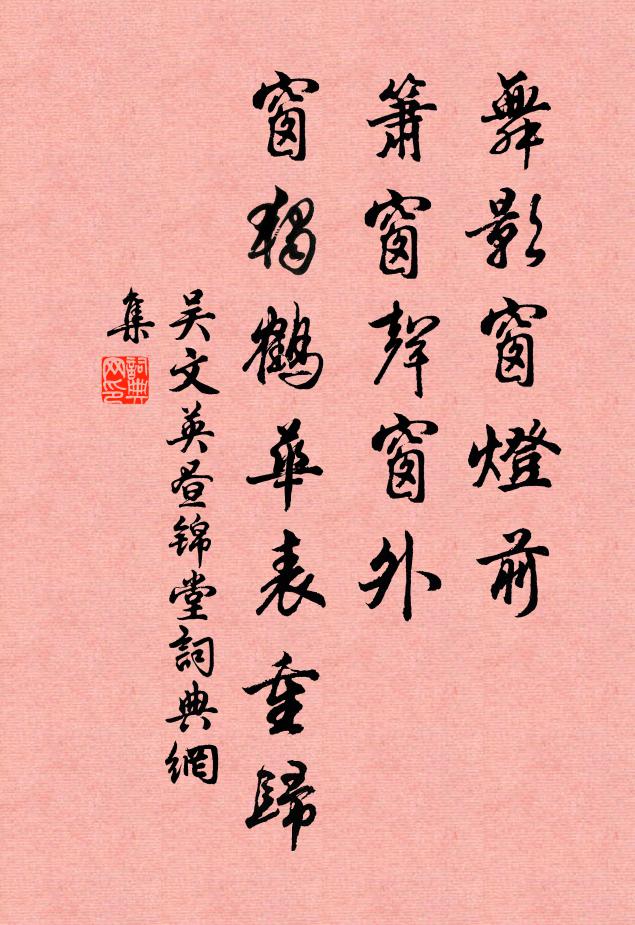 舞影窗燈前
簫窗聲窗外
窗獨鶴華表重歸
吴文英昼锦堂詞典網
集
詞典
网印